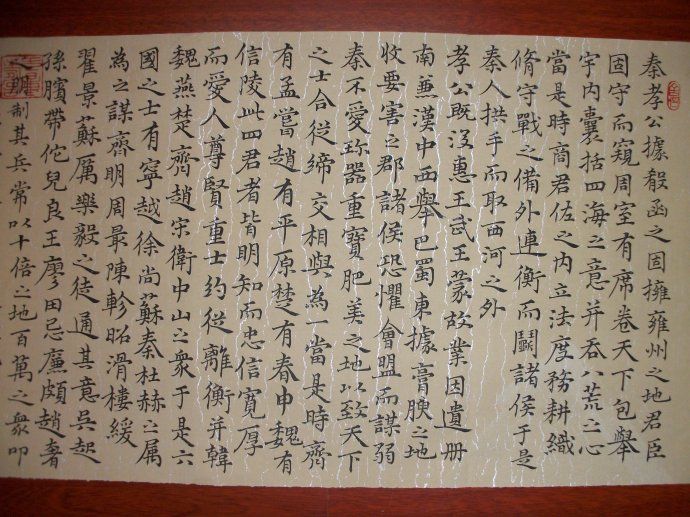 秦孝公據殽函之固擁雍州之地君臣
固守而窺周室有席卷天下包舉
宇內囊括四海之意并吞八荒之心
當是時商君佐之內立法度務耕織
脩守戰之備外連衡而鬬諸侯于是
秦人拱手而取西河之外
孝公既沒惠王武王蒙故業因遺册
南兼漢中西舉巴蜀東據膏腴之地
收要害之郡諸侯恐懼會盟而謀弱
秦不愛珍器重寶肥美之地以致天下
之士合從締交相與為一當是時齊
有孟嘗趙有平原楚有春申魏有
信陵此四君者皆明知而忠信寬厚
而愛人尊賢重士約從離衡并韓
魏燕楚齊趙宋衛中山之衆于是六
國之士有寧越徐尚蘇秦杜赫之屬
為之謀齊明周最陳軫昭滑樓緩
翟景蘇厲樂毅之徒通其意吳起
孫臏帶佗兒良王廖田忌廉頗趙奢
之朋制其兵常以十倍之地百萬之衆叩